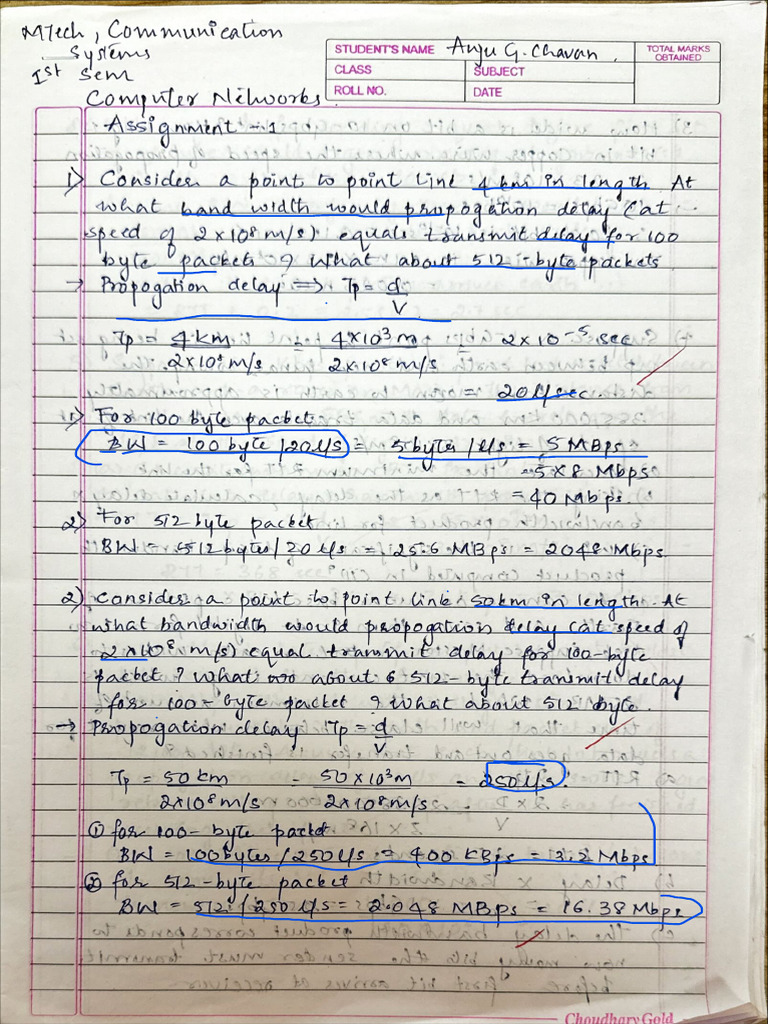 MTech, Communication
Systems
Ist Sem
STUDENT'S NAME Anju G. Chavan.
TOTAL MARKS OBTAINED
CLASS SUBJECT
ROLL NO. DATE
Computer Networks.
Assignment - 1
1) Consider a point to point link 4 km in length. At
what band width would propogation delay (at
speed of 2×10⁸ m/s) equals transmit delay for 100
byte packets? What about 512-byte packets.
→ Propogation delay ⟹ Tp = d/V
Tp = 4 km / 2×10⁸ m/s = 4×10³ m / 2×10⁸ m/s = 2×10⁻⁵ sec
= 20 μsec.
1) For 100 byte packet
BW = 100 byte /20 μs = 5 bytes /μs = 5 MBps
= 5×8 Mbps
= 40 Mbps.
2) For 512 byte packet
BW = 512 bytes / 20 μs = 25.6 MBps = 204.8 Mbps.
2) Consider a point to point link 50 km in length. At
what bandwidth would propogation delay (at speed of
2×10⁸ m/s) equal transmit delay for 100-byte
packet? What about 512-byte transmit delay
for 100-byte packet? What about 512 byte.
→ Propogation delay Tp = d/V
Tp = 50 km / 2×10⁸ m/s = 50×10³ m / 2×10⁸ m/s = 250 μs.
① for 100-byte packet
BW = 100 bytes / 250 μs = 400 KBps = 3.2 Mbps
② for 512-byte packet
BW = 512 / 250 μs = 2.048 MBps = 16.38 Mbps
Choudhary Gold